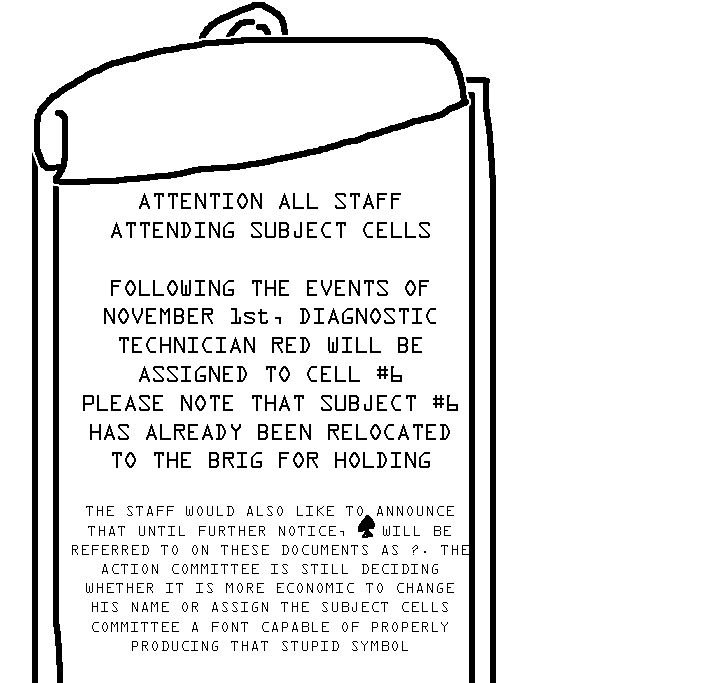 ATTENTION ALL STAFF
ATTENDING SUBJECT CELLS
FOLLOWING THE EVENTS OF
NOVEMBER 1st, DIAGNOSTIC
TECHNICIAN RED WILL BE
ASSIGNED TO CELL #6
PLEASE NOTE THAT SUBJECT #6
HAS ALREADY BEEN RELOCATED
TO THE BRIG FOR HOLDING
THE STAFF WOULD ALSO LIKE TO ANNOUNCE
THAT UNTIL FURTHER NOTICE, ♠ WILL BE
REFERRED TO ON THESE DOCUMENTS AS ?. THE
ACTION COMMITTEE IS STILL DECIDING
WHETHER IT IS MORE ECONOMIC TO CHANGE
HIS NAME OR ASSIGN THE SUBJECT CELLS
COMMITTEE A FONT CAPABLE OF PROPERLY
PRODUCING THAT STUPID SYMBOL